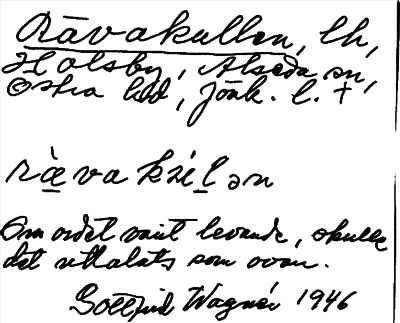 Rävakullen, lh,
Holsby, Alseda sn,
Östra hd, Jönk. l. †
ràvakúlən
Om ordet varit levande, skulle
det uttalats som ovan.
Gottfrid Wagnér 1946